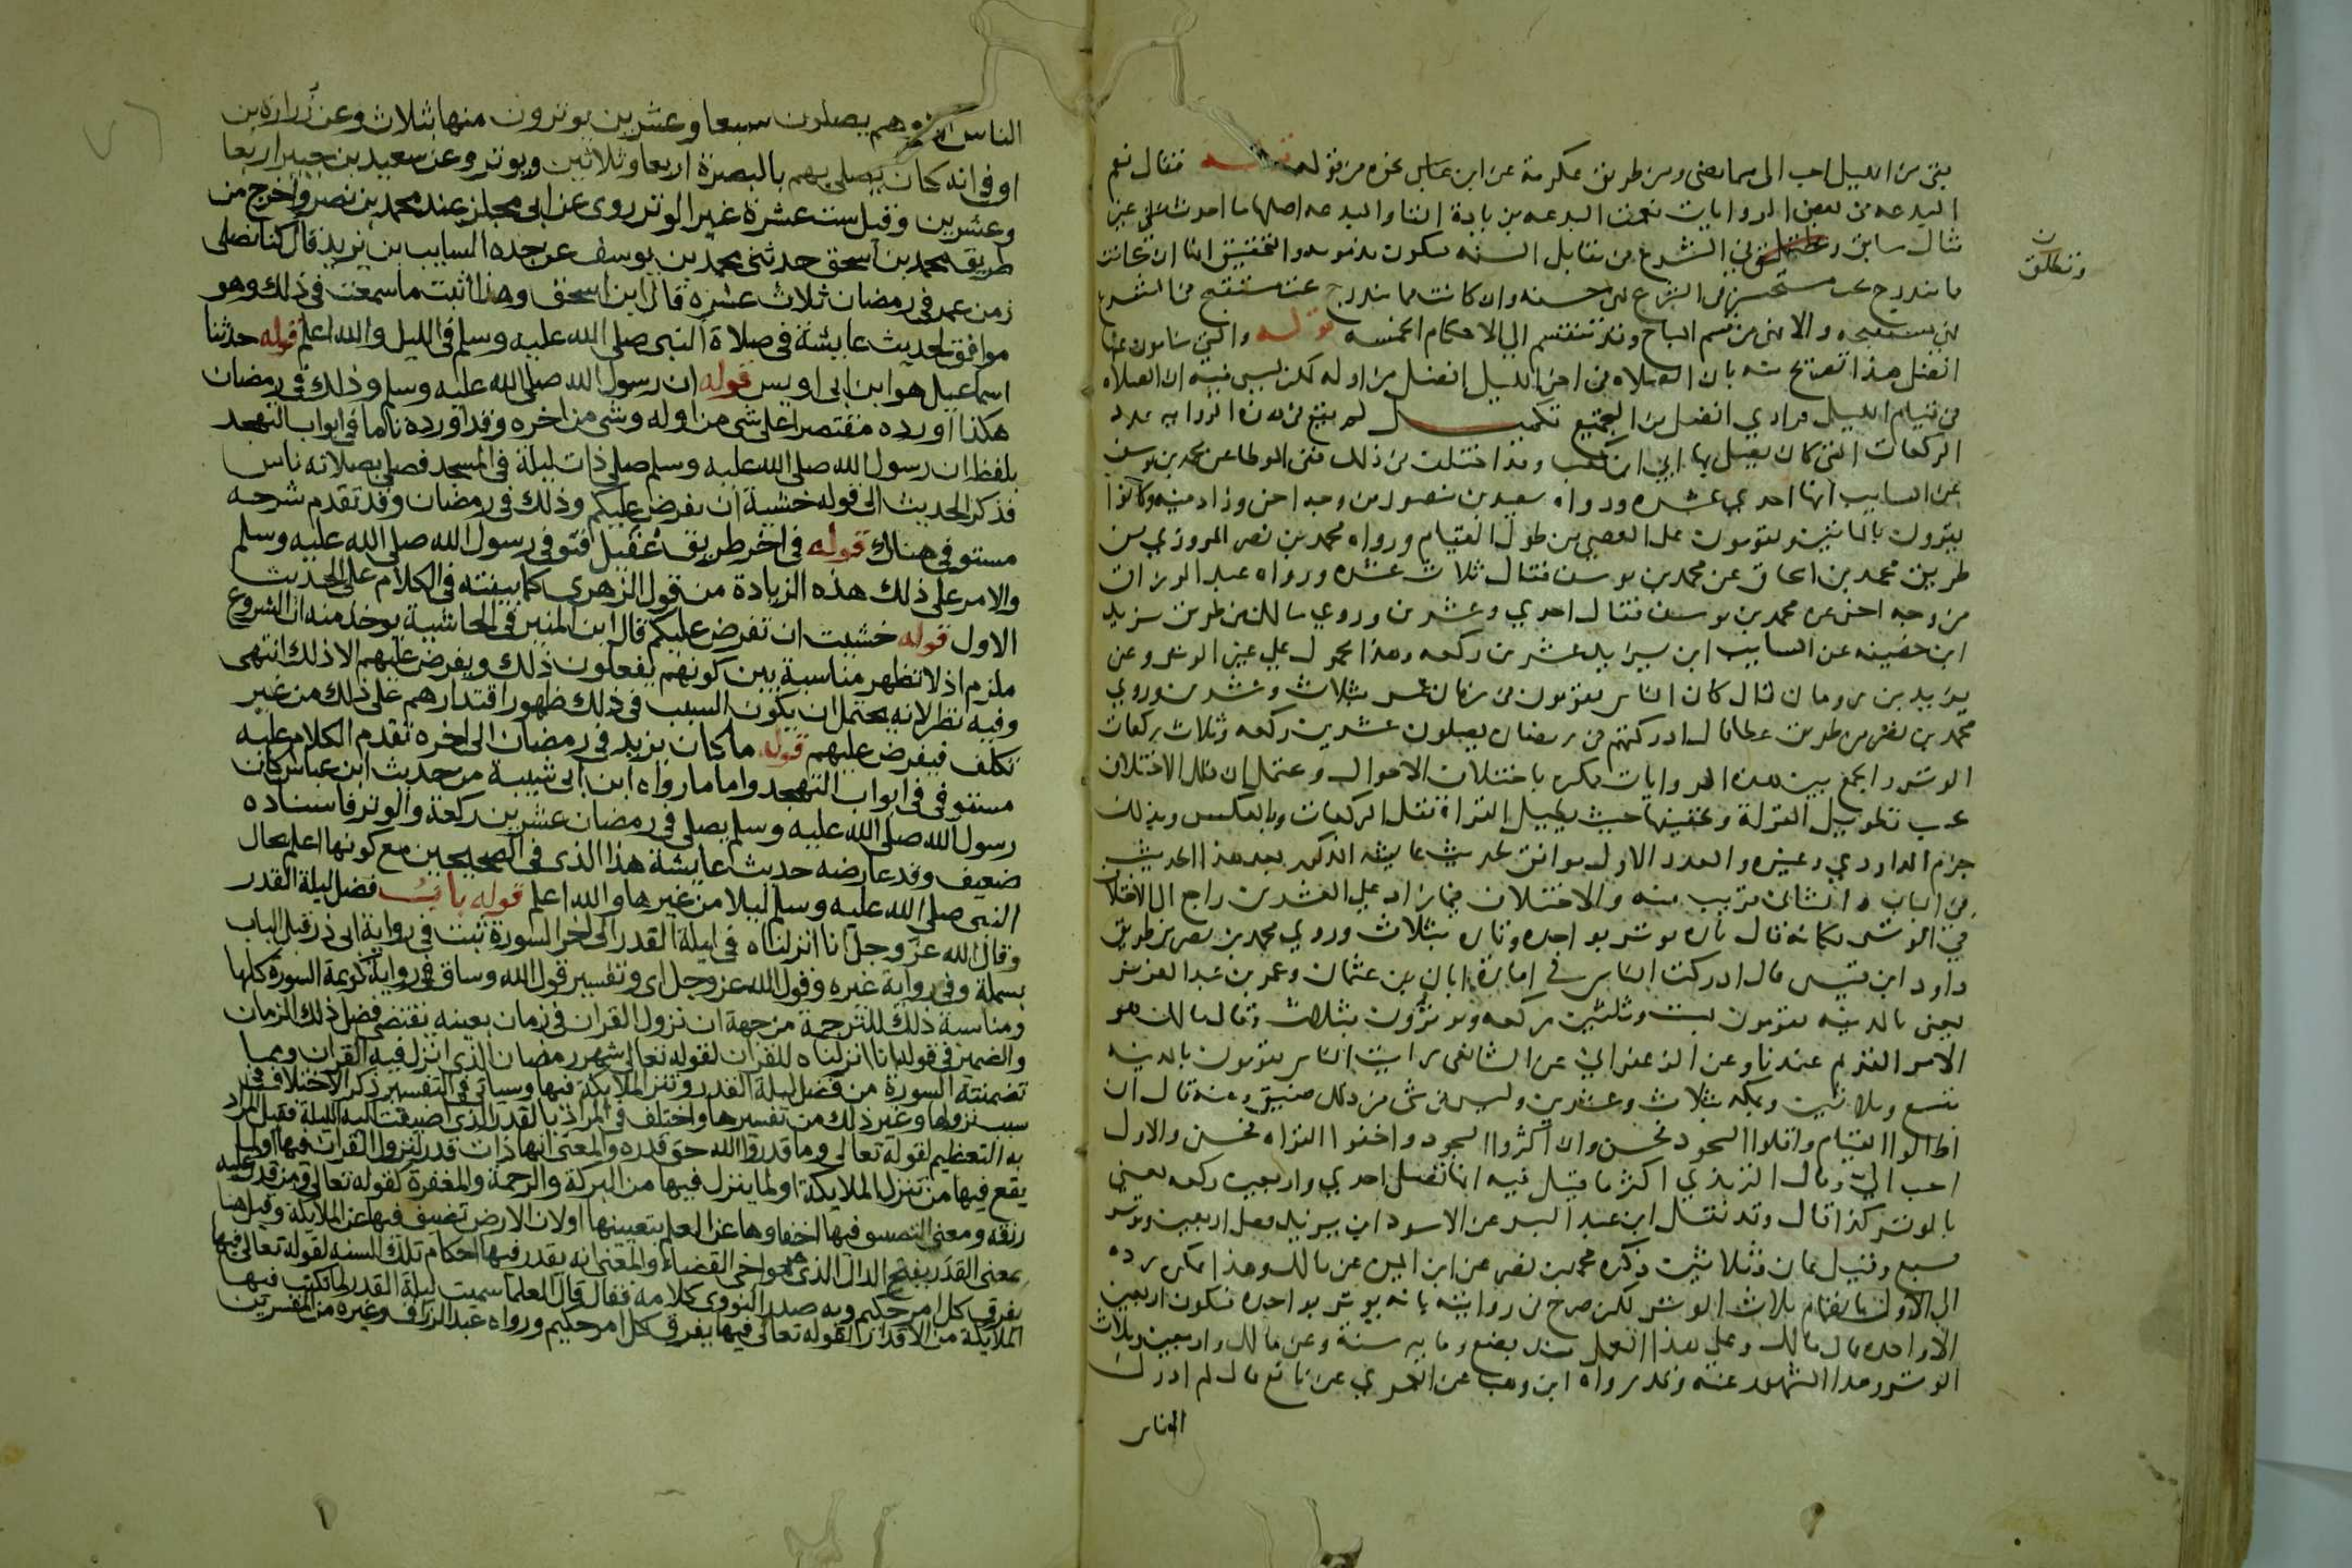 بقي من الليل احب الي مما مضى ومن طريق عكرمة عن ابن عباس نحوه من قوله قوله فقال نعم
البدعه في بعض الروايات نعمت البدعه بزيادة التا والبدعه اصلها ما احدث على غير
مثال سابق وتطلق في الشرع في مقابل السنه فتكون مذمومه والتحقيق انها ان كانت
مما تندرج تحت مستحسن في الشرع فهي حسنه وان كانت مما تندرج تحت مستقبح في الشرع
فهي مستقبحه والا فهي من قسم المباح وقد تنقسم الى الاحكام الخمسه قوله والتي ينامون عنها
افضل هذا تصريح منه بان الصلاه في اخر الليل افضل من اوله لكن ليس فيه ان الصلاه
في قيام الليل فرادي افضل من التجميع تكميل لم يقع في هذه الروايه عدد
الركعات التي كان يصلي بها ابي ابن كعب وقد اختلف في ذلك ففي الموطا عن محمد بن يوسف
عن السايب انها احدي عشره ورواه سعيد بن منصور من وجه اخر وزاد فيه وكانوا
يقرون بالمائتين ويقومون على العصي من طول القيام ورواه محمد بن نصر المروزي من
طريق محمد بن اسحاق عن محمد بن يوسف فقال ثلاث عشره ورواه عبد الرزاق
من وجه اخر عن محمد بن يوسف فقال احدي وعشرين وروي مالك من طريق يزيد
ابن خصيفه عن السايب ابن يزيد عشرين ركعه وهذا محمول على غير الوتر وعن
يزيد بن رومان قال كان الناس يقومون في زمان عمر بثلاث وعشرين وروي
محمد بن نصر من طريق عطا قال ادركتهم في رمضان يصلون عشرين ركعه وثلاث ركعات
الوتر والجمع بين هذه الروايات ممكن باختلاف الاحوال ويحتمل ان ذلك الاختلاف
بحسب تطويل القراة وتخفيفها حيث يطيل القراة تقل الركعات وبالعكس وبذلك
جزم الداودي وغيره والعدد الاول موافق لحديث عايشه المذكور بعد هذا الحديث
في الباب والثاني قريب منه والاختلاف فيما زاد على العشرين راجع الى الاختلاف
في الوتر وكانه قال تاره يوتر بواحده وتاره بثلاث وروي محمد بن نصر من طريق
داود ابن قيس قال ادركت الناس في امارة ابان بن عثمان وعمر بن عبد العزيز
يعني بالمدينه يقومون بست وثلثين ركعه ويوترون بثلاث وقال مالك هو
الامر القديم عندنا وعن الزعفراني عن الشافعي رايت الناس يقومون بالمدينه
بتسع وثلاثين وبمكه بثلاث وعشرين وليس في شي من ذلك ضيق وعنه قال ان
اطالوا القيام واقلوا السجود فحسن وان اكثروا السجود واخفوا القراه فحسن والاول
احب الي وقال الترمذي اكثر ما قيل فيه انها تصلى احدي واربعين ركعه يعني
بالوتر كذا قال وقد نقل ابن عبد البر عن الاسود ابن يزيد تصلى اربعين ويوتر
بسبع وقيل ثمان وثلاثين ذكره محمد بن نصر عن ابن ايمن عن مالك وهذا يمكن رده
الى الاول بانضمام ثلاث الوتر لكن صرح في روايته بانه يوتر بواحده فتكون اربعين
الا واحده قال مالك وعلى هذا العمل منذ بضع وماية سنة وعن مالك ست واربعين وثلاث
الوتر وهذا المشهور عنه وقد رواه ابن وهب عن العمري عن نافع قال لم ادرك
الناس
وتطلق
الناس الا وهم يصلون سبعا وعشرين يوترون منها بثلاث وعن زرارة بن
اوفى انه كان يصلي بهم بالبصرة اربعا وثلاثين ويوتر وعن سعيد بن جبير اربعا
وعشرين وقيل ست عشرة غير الوتر روى عن ابي مجلز عند محمد بن نصر واخرج من
طريق محمد بن اسحق حدثني محمد بن يوسف عن جده السايب بن يزيد قال كنا نصلى
زمن عمر في رمضان ثلاث عشره قال ابن اسحق وهذا اثبت ما سمعت في ذلك وهو
موافق لحديث عايشة في صلاة النبي صلى الله عليه وسلم في الليل والله اعلم قوله حدثنا
اسماعيل هو ابن ابي اويس قوله ان رسول الله صلى الله عليه وسلم وذلك في رمضان
هكذا اورده مقتصرا على شي من اوله وشي من اخره وقد اورده تاما في ابواب التهجد
بلفظ ان رسول الله صلى الله عليه وسلم صلى ذات ليلة في المسجد فصلى بصلاته ناس
فذكر الحديث الى قوله خشية ان يفرض عليكم وذلك في رمضان وقد تقدم شرحه
مستوفى هناك قوله في اخر طريق عقيل فتوفي رسول الله صلى الله عليه وسلم
والامر على ذلك هذه الزيادة من قول الزهري كما بينته في الكلام على الحديث
الاول قوله خشيت ان تفرض عليكم قال ابن المنير في الحاشية يوخذ منه ان الشروع
ملزم اذ لا تظهر مناسبة بين كونهم يفعلون ذلك ويفرض عليهم الا ذلك انتهى
وفيه نظر لانه يحتمل ان يكون السبب في ذلك ظهور اقتدارهم على ذلك من غير
تكلف فيفرض عليهم قوله ما كان يزيد في رمضان الى اخره تقدم الكلام عليه
مستوفى في ابواب التهجد واما ما رواه ابن ابي شيبة من حديث ابن عباس كان
رسول الله صلى الله عليه وسلم يصلي في رمضان عشرين ركعة والوتر فاسناده
ضعيف وقد عارضه حديث عايشة هذا الذى في الصحيحين مع كونها اعلم بحال
النبي صلى الله عليه وسلم ليلا من غيرها والله اعلم قوله باب فضل ليلة القدر
وقال الله عز وجل انا انزلناه في ليلة القدر الى اخر السورة ثبت في رواية ابي ذر قبل الباب
بسملة وفي رواية غيره وقول الله عز وجل اى وتفسير قول الله وساق في رواية كريمة السورة كلها
ومناسبة ذلك للترجمة من جهة ان نزول القران في زمان بعينه يقتضي فضل ذلك الزمان
والضمير في قوله انا انزلناه للقران لقوله تعالى شهر رمضان الذى انزل فيه القران ومما
تضمنته السورة من فضل ليلة القدر وتنزل الملايكة فيها وسياتي في التفسير ذكر الاختلاف في
سبب نزولها وغير ذلك من تفسيرها واختلف في المراد بالقدر الذي اضيفت اليه الليلة فقيل المراد
به التعظيم لقوله تعالى وما قدروا الله حق قدره والمعنى انها ذات قدر لنزول القران فيها او لما
يقع فيها من تنزل الملايكة او لما ينزل فيها من البركة والرحمة والمغفرة كقوله تعالى ومن قدر عليه
رزقه ومعنى التضييق فيها اخفاوها عن العلم بتعيينها او لان الارض تضيق فيها عن الملايكة وقيل هنا
بمعنى القدر بفتح الدال الذى هو مواخي القضاء والمعنى انه يقدر فيها احكام تلك السنة لقوله تعالى فيها
يفرق كل امر حكيم وبه صدر النووي كلامه فقال قال العلما سميت ليلة القدر لما تكتب فيها
الملايكة من الاقدار لقوله تعالى فيها يفرق كل امر حكيم ورواه عبد الرزاق وغيره من المفسرين